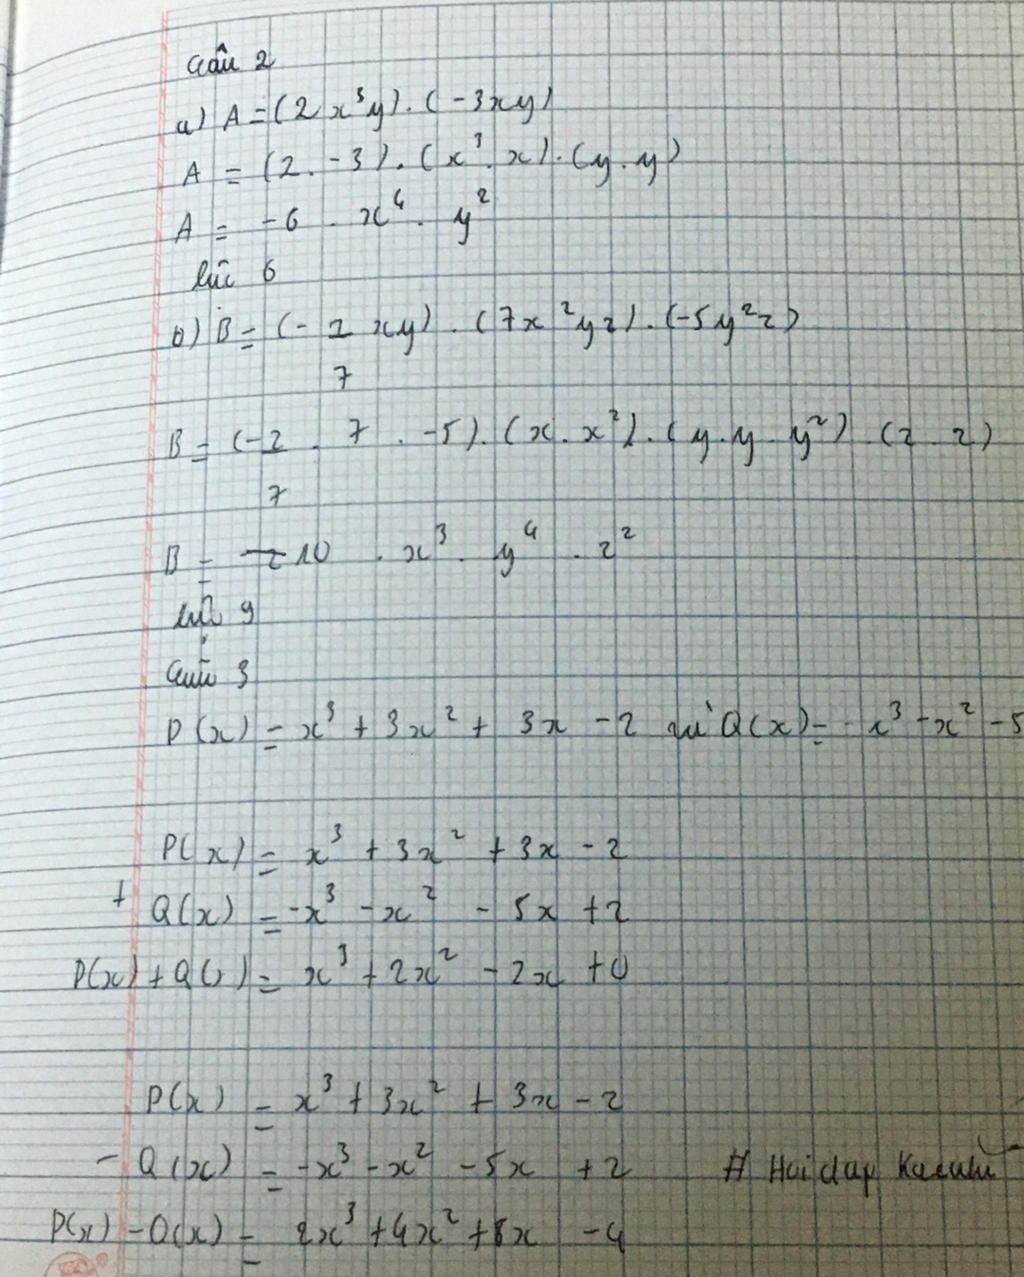 Câu 2
a) A = (2x³y).(-3xy)
A = (2.-3).(x³.x).(y.y)
A = -6 . x⁴ . y²
bậc 6
b) B = (-2xy).(7x²yz).(-5y²z)
7
B = (-2 . 7 . -5).(x.x²).(y.y.y²).(z.z)
7
B = 10 . x³ . y⁴ . z²
bậc 9
Câu 3
P(x) = x³ + 3x² + 3x - 2 và Q(x) = -x³ - x² - 5
P(x) = x³ + 3x² + 3x - 2
+ Q(x) = -x³ - x² - 5x + 2
P(x) + Q( ) = x³ + 2x² - 2x + 0
P(x) = x³ + 3x² + 3x - 2
- Q(x) = -x³ - x² - 5x + 2 # Hoidap
P(x) - Q(x) = 2x³ + 4x² + 8x - 4